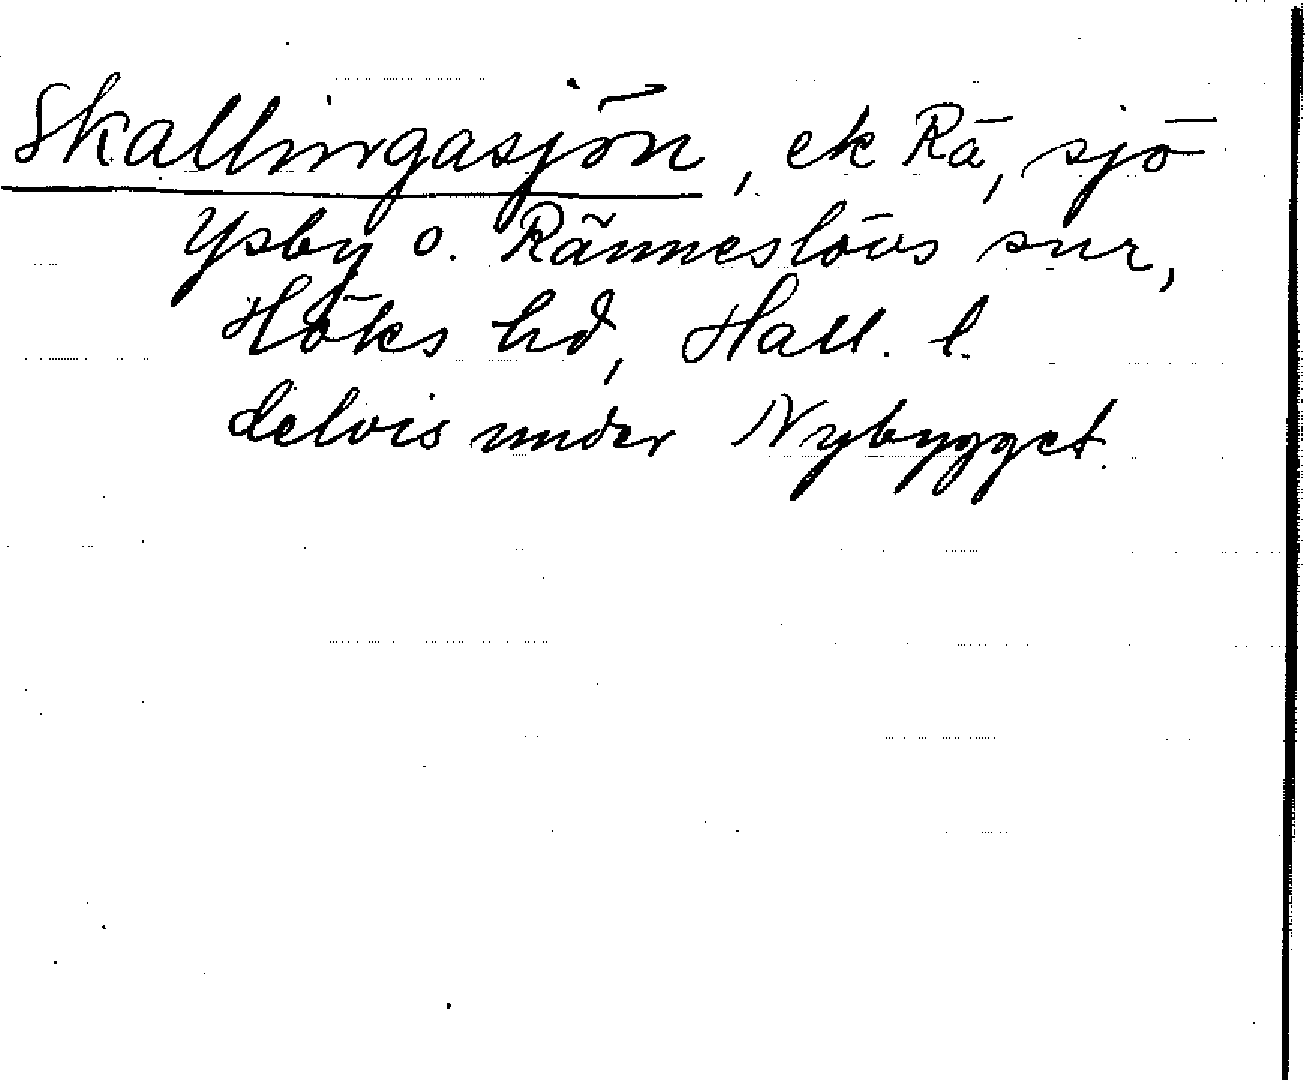 Skallingasjön, ek Rä, sjö
Ysby o. Ränneslövs snr,
Höks hd, Hall. l.
delvis under Nybygget.